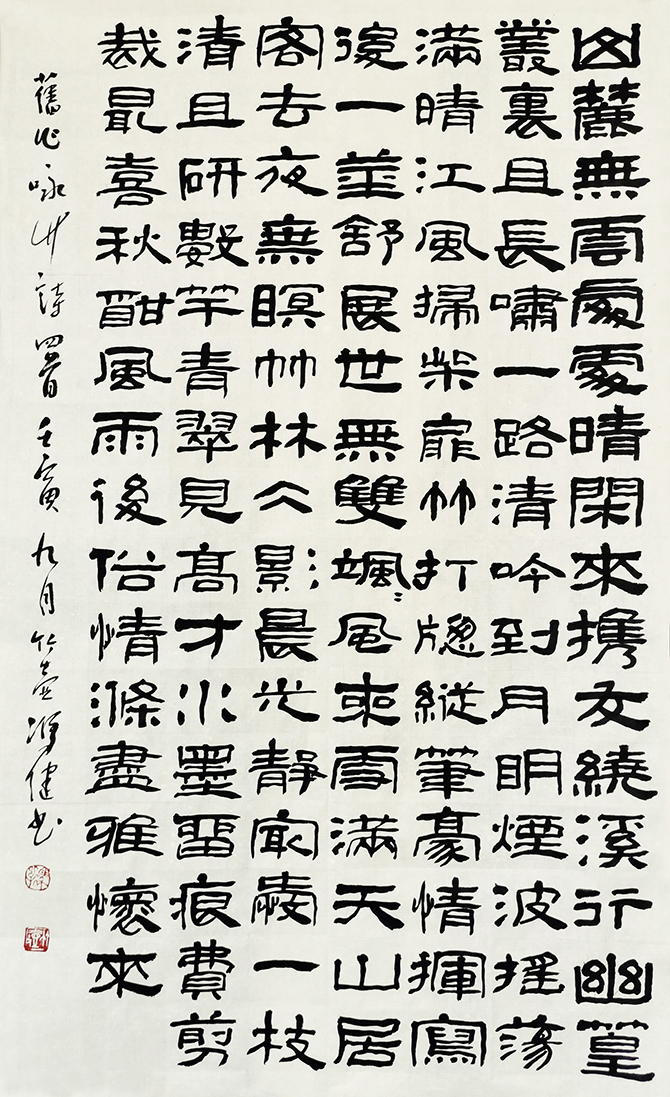 山麓無雲處處晴閑來攜友繞溪行幽篁
叢裏且長嘯一路清吟到月明煙波搖蕩
滿晴江風掃柴扉竹打窗縱筆豪情揮寫
後一莖舒展世無雙颯〻風來雪滿天山居
客去夜無瞑竹林个影晨光靜一枝
清且研數竿青翠見高才水墨留痕費剪
裁最喜秋酣風雨後俗情滌盡雅懷來
舊作詠竹詩四首壬寅九月竹壺馮健書